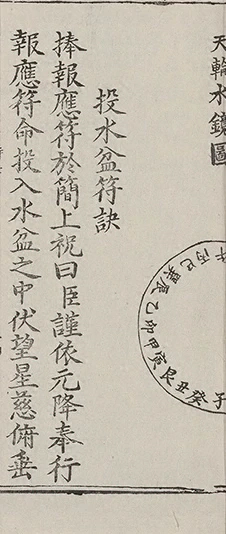 天輪水鏡圖
午丙巳巽辰乙卯甲寅艮丑癸子
投水盆符訣
捧報應符於簡上祝曰臣謹依元降奉行
報應符命投入水盆之中伏望星慈俯垂